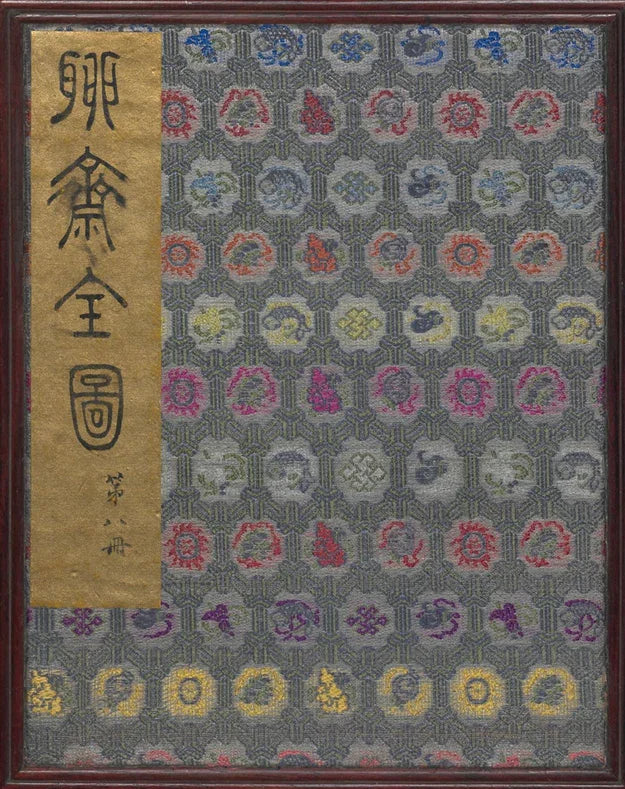 聊齋全圖
第八冊